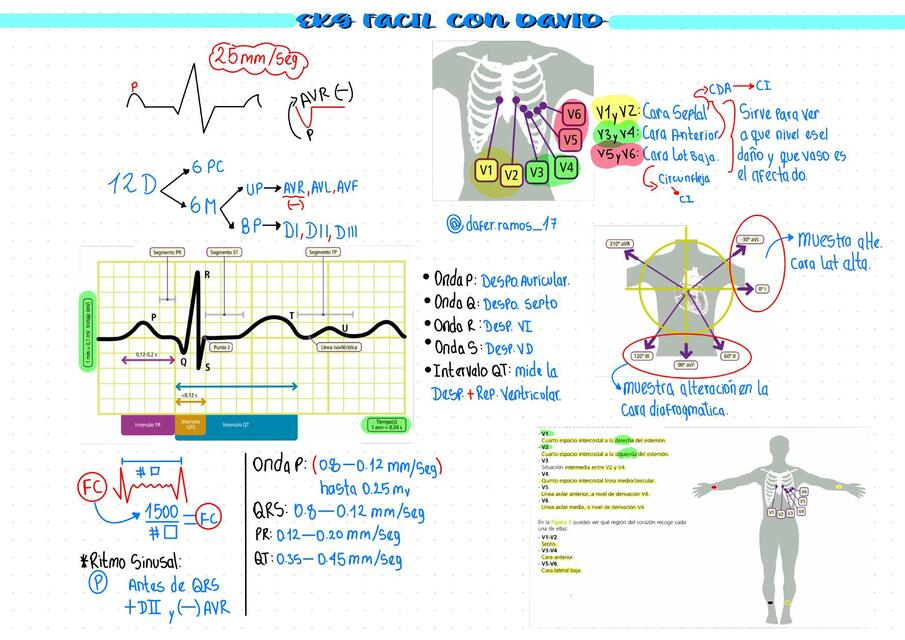 EKG FACIL CON DAVID
25mm/seg
P
AVR (-)
P
12D
6 PC
6 M
UP → AVR, AVL, AVF
(-)
BP → DI, DII, DIII
V1
V2
V3
V4
V5
V6
V1 y V2: Cara Septal
V3 y V4: Cara Anterior
V5 y V6: Cara Lat Baja.
Circunfleja
CI
CDA → CI
Sirve para ver
a que nivel es el
daño y que vaso es
el afectado.
@dafer.ramos_17
Segmento PR
Segmento ST
Segmento TP
1 mm = 0,1 mV Voltaje (mV)
R
P
T
U
Q
S
Punto J
Línea isoeléctrica
0,12-0,2 s
<0,12 s
Intervalo PR
Intervalo
QRS
Intervalo QT
Tiempo(s)
1 mm = 0,04 s
• Onda P: Despo. Auricular.
• Onda Q: Despo. Septo
• Onda R: Desp. VI
• Onda S: Desp. VD
• Intervalo QT: mide la
Desp. + Rep. Ventricular.
210º aVR
-30º aVL
0º I
120º III
90º aVF
60º II
muestra alte.
cara lat alta.
muestra alteración en la
Cara diafragmática.
# □
FC
1500
# □
= FC
*Ritmo Sinusal:
P Antes de QRS
+DII y (-) AVR
Onda P: (0.8 — 0.12 mm/seg)
hasta 0.25 mv
QRS: 0.8 — 0.12 mm/seg
PR: 0.12 — 0.20 mm/seg
QT: 0.35 — 0.45 mm/seg
- V1
Cuarto espacio intercostal a la derecha del esternón.
- V2
Cuarto espacio intercostal a la izquierda del esternón.
- V3
Situación intermedia entre V2 y V4.
- V4
Quinto espacio intercostal línea medioclavicular.
- V5
Línea axilar anterior, a nivel de derivación V4.
- V6
Línea axilar media, a nivel de derivación V4.
En la figura 5 puedes ver qué región del corazón recoge cada
una de ellas:
- V1-V2.
Septo.
- V3-V4
Cara anterior.
- V5-V6.
Cara lateral baja.
V1
V2
V3
V4
V5
V6